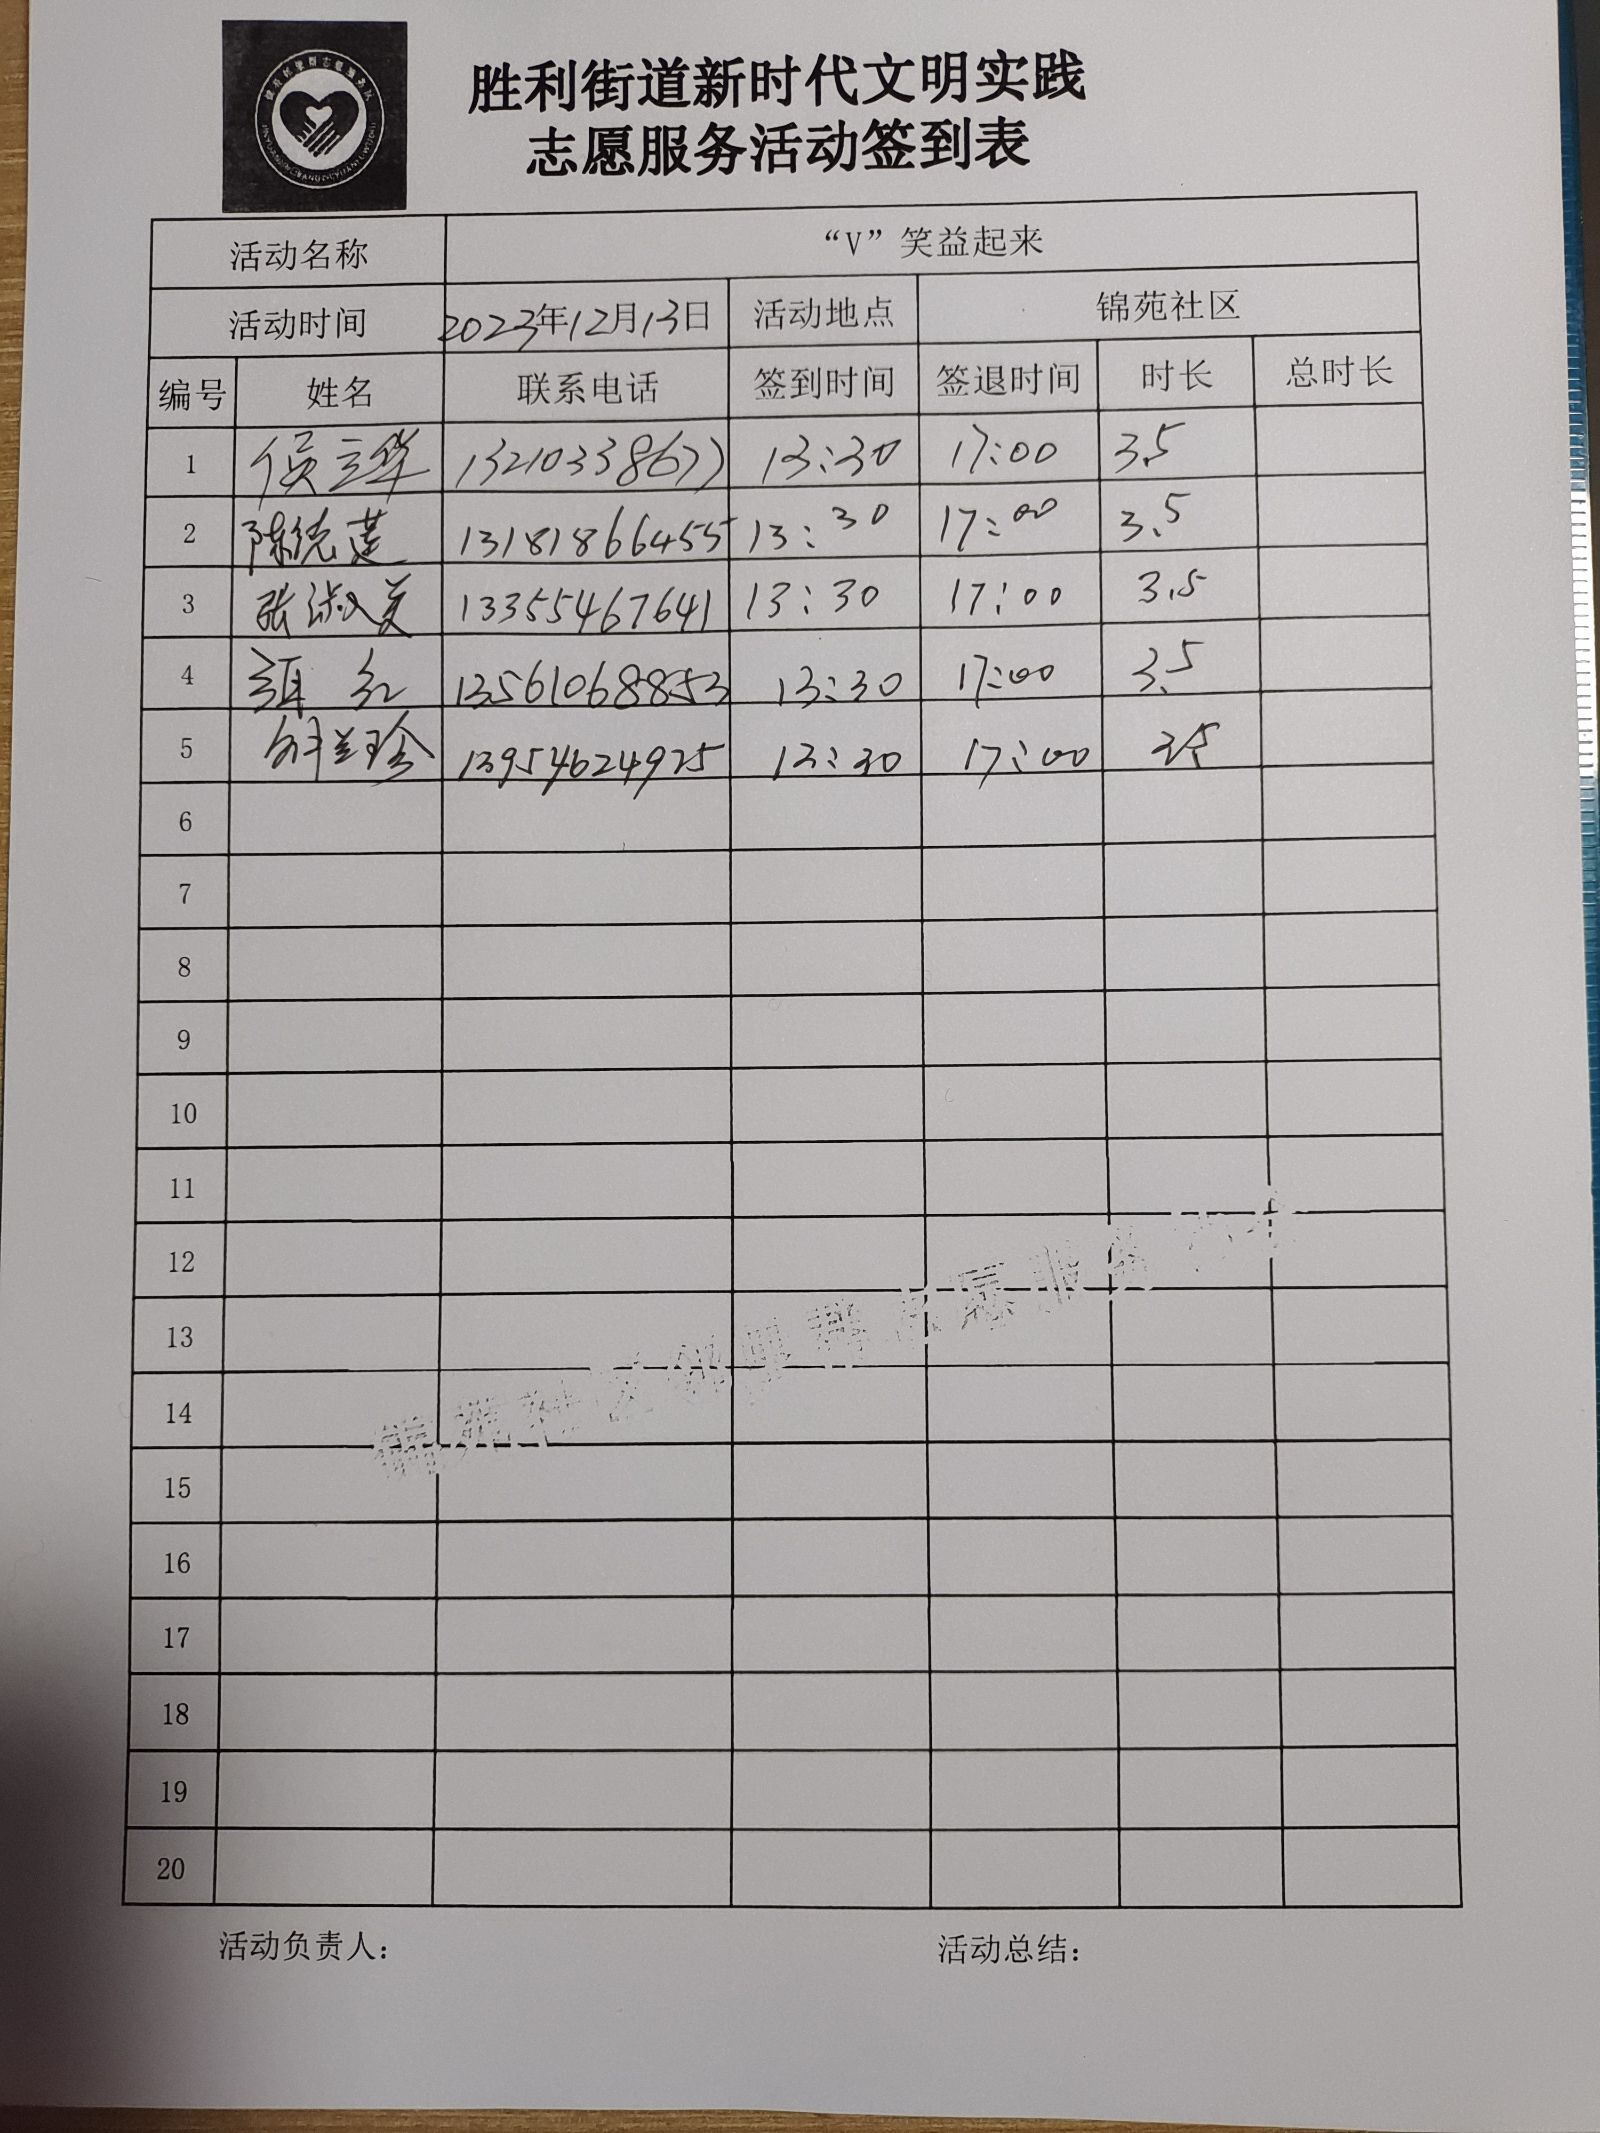 胜利街道新时代文明实践
志愿服务活动签到表
活动名称 “V”笑益起来
活动时间 2023年12月13日 活动地点 锦苑社区
编号 姓名 联系电话 签到时间 签退时间 时长 总时长
1 侯立华 13210338677 13:30 17:00 3.5
2 陈德莲 13181866455 13:30 17:00 3.5
3 张淑美 13355467641 13:30 17:00 3.5
4 红 13561068853 13:30 17:00 3.5
5 兰珍 13954624925 13:30 17:00 3.5
6
7
8
9
10
11
12
13
14
15
16
17
18
19
20
锦苑社区 群志愿服务
活动负责人: 活动总结: